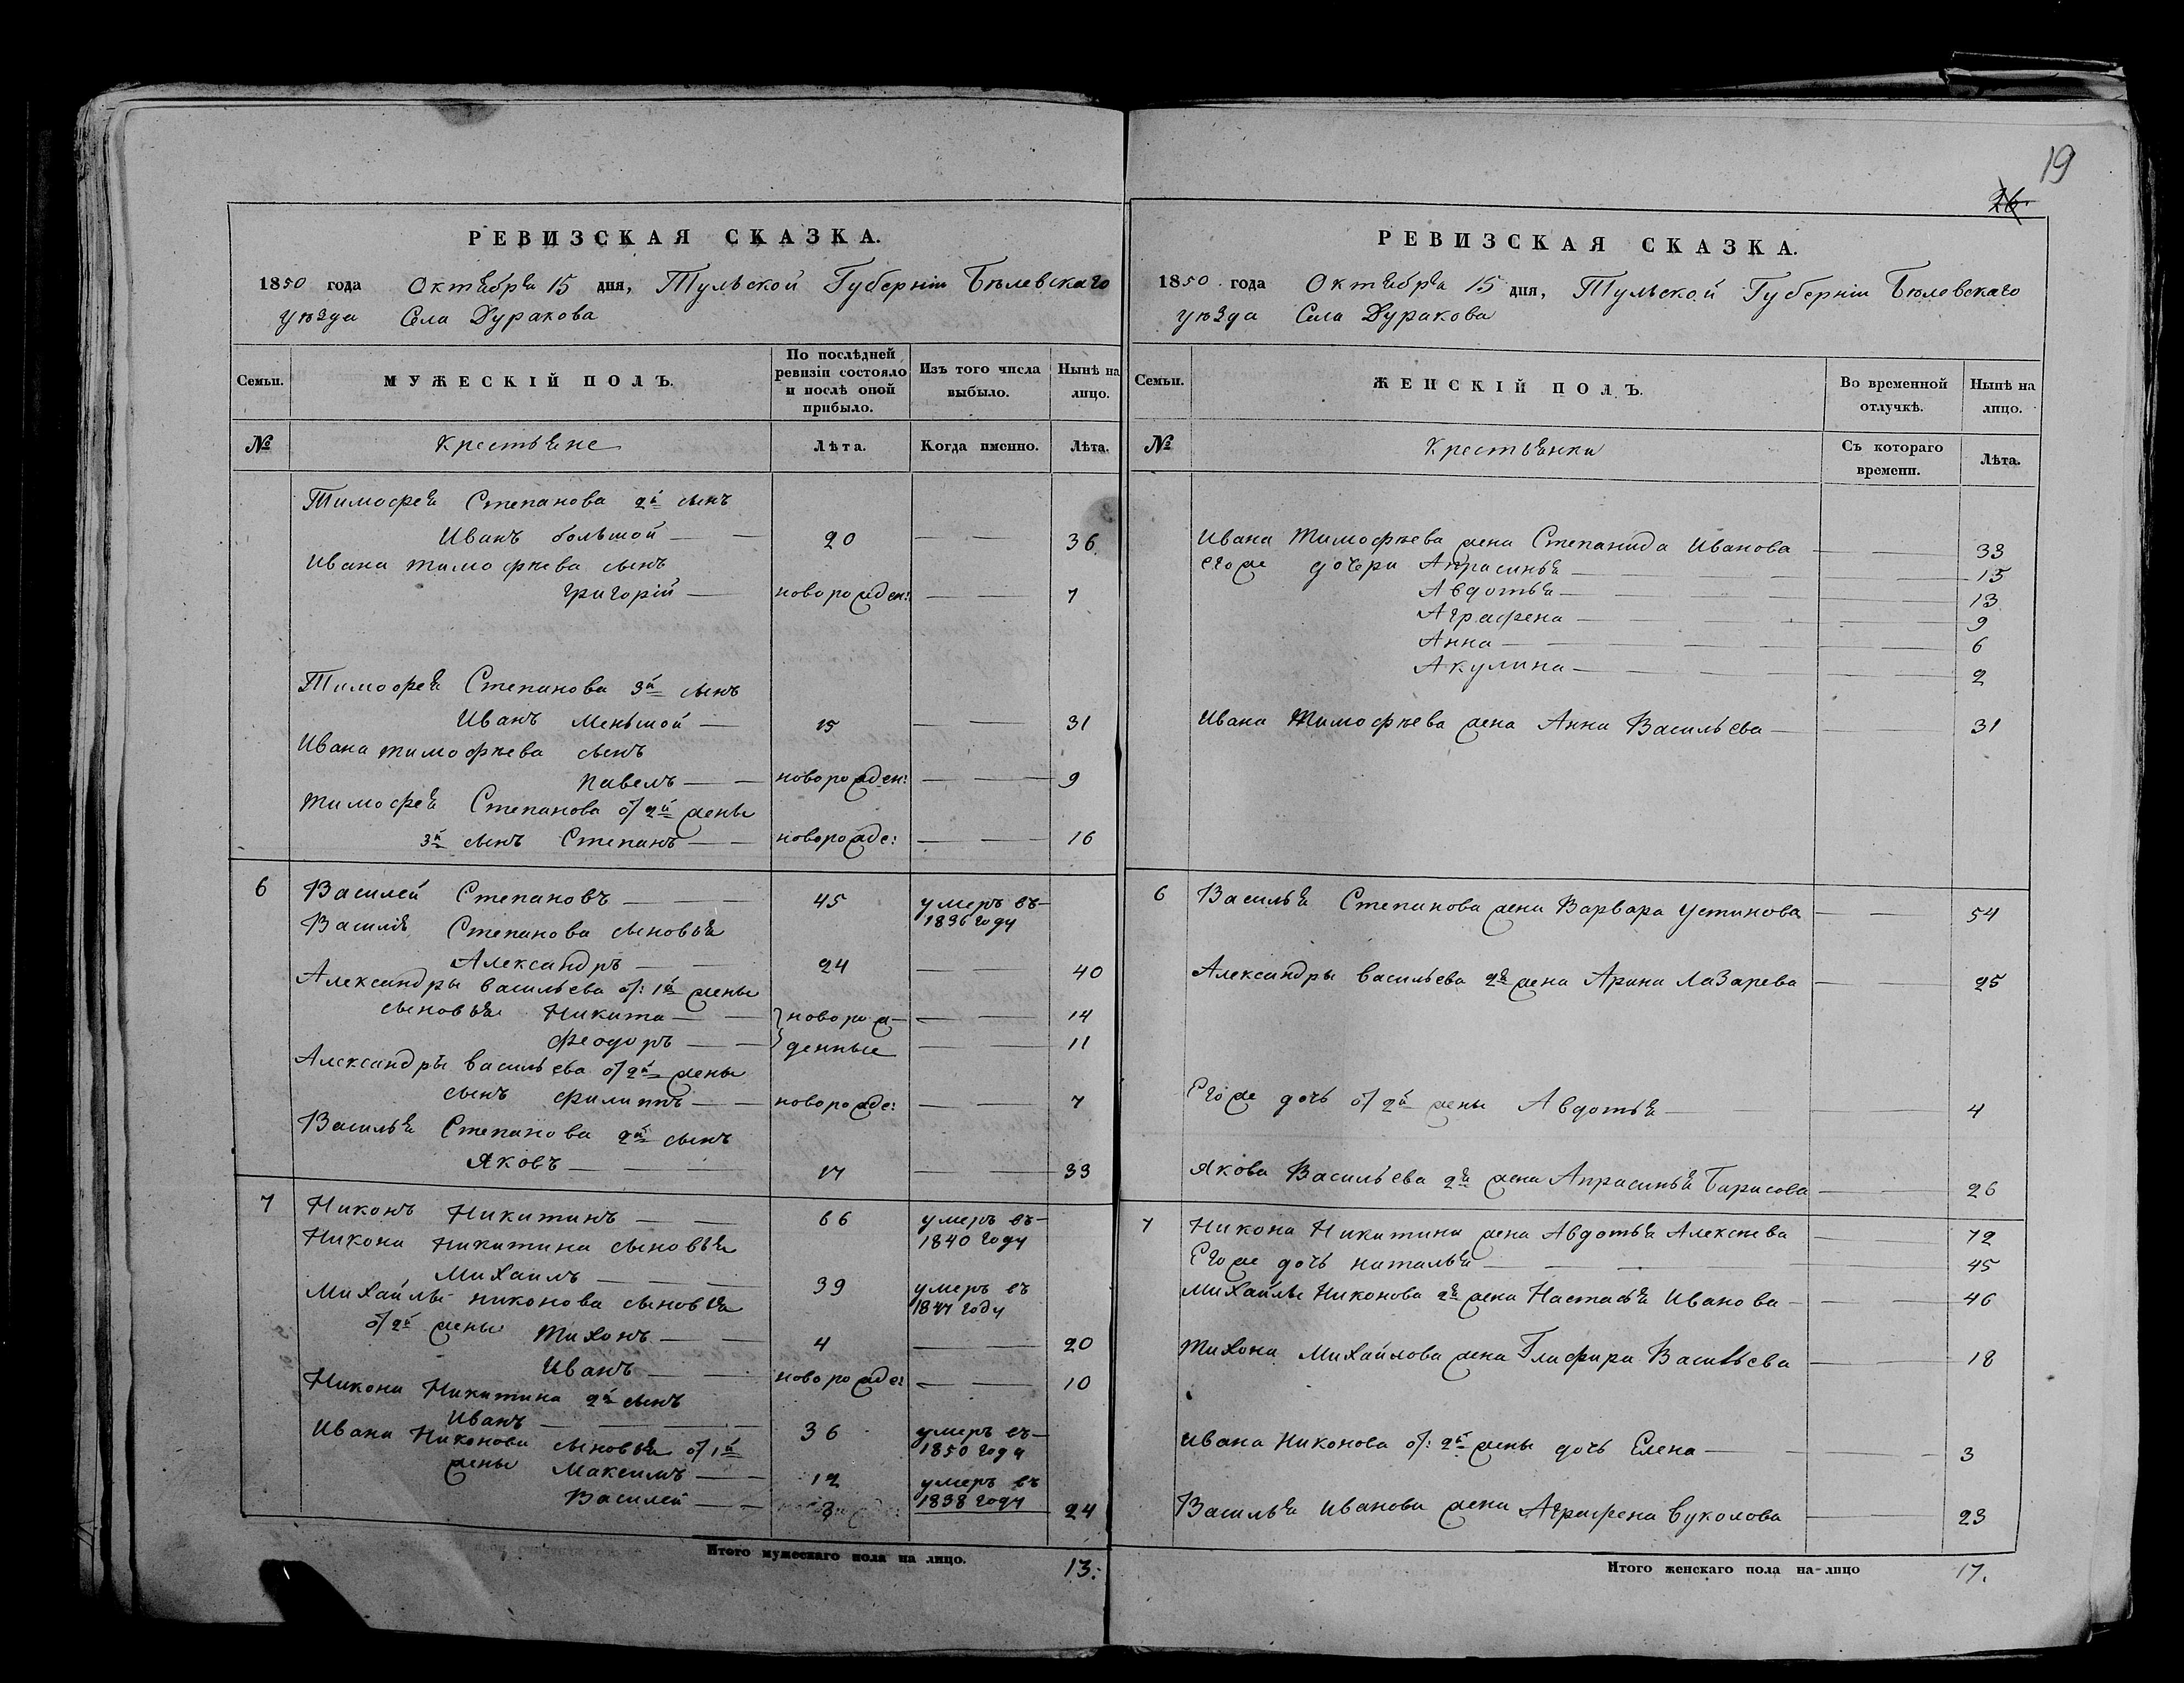 19
26.
РЕВИЗСКАЯ СКАЗКА.
1850 года Октября 15 дня, Тульской Губерніи Бѣлевскаго
уѣзда Села Дуракова
Семьи.
МУЖЕСКІЙ ПОЛЪ.
По послѣдней ревизіи состояло и послѣ оной прибыло.
Изъ того числа выбыло.
Нынѣ на лицо.
№ Крестьяне Лѣта. Когда именно. Лѣта.
Тимофея Степанова 2й сынъ
Иванъ большой 20 36
Ивана Тимофѣева сынъ
Григорій новорожден: 7
Тимофея Степанова 3й сынъ
Иванъ Меньшой 15 31
Ивана Тимофѣева сынъ
Павелъ новорожден: 9
Тимофея Степанова от 2й жены
3й сынъ Степанъ новорожде: 16
6 Василей Степановъ 45 умеръ въ
1836 году
Василія Степанова сыновья
Александръ 24 40
Александры Васильева от: 1й жены
сыновья Никита новорож- 14
Феодоръ денные 11
Александры Васильева от 2й жены
сынъ Филиппъ новорожде: 7
Василья Степанова 2й сынъ
Яковъ 17 33
7 Никонъ Никитинъ 66 умеръ въ
1840 году
Никона Никитина сыновья
Михаилъ 39 умеръ въ
1847 году
Михайлы Никонова сыновья
от 2й жены Тихонъ 4 20
Иванъ новорожде: 10
Никона Никитина 2й сынъ
Иванъ 36 умеръ въ
1850 году
Ивана Никонова сыновья от 1й
жены Максимъ 12 умеръ въ
1838 году
Василей 8 24
Итого мужескаго пола на лицо. 13.
РЕВИЗСКАЯ СКАЗКА.
1850 года Октября 15 дня, Тульской Губерніи Бѣлевскаго
уѣзда Села Дуракова
Семьи.
ЖЕНСКІЙ ПОЛЪ.
Во временной отлучкѣ.
Нынѣ на лицо.
№ Крестьянки Съ котораго времени. Лѣта.
Ивана Тимофѣева жена Степанида Иванова 33
Егоже дочери Апрасинья 15
Авдотья 13
Аграфена 9
Анна 6
Акулина 2
Ивана Тимофѣева жена Анна Васильева 31
6 Василья Степанова жена Варвара Устинова 54
Александры Васильева 2я жена Арина Лазарева 25
Егоже дочь от 2й жены Авдотья 4
Якова Васильева 2я жена Апрасинья Барисова 26
7 Никона Никитина жена Авдотья Алексѣева 72
Егоже дочь Наталья 45
Михайлы Никонова 2я жена Настасья Иванова 46
Тихона Михайлова жена Глафира Васильева 18
Ивана Никонова от: 2й жены дочь Елена 3
Василья Иванова жена Аграфена Вуколова 23
Итого женскаго пола на-лицо 17.